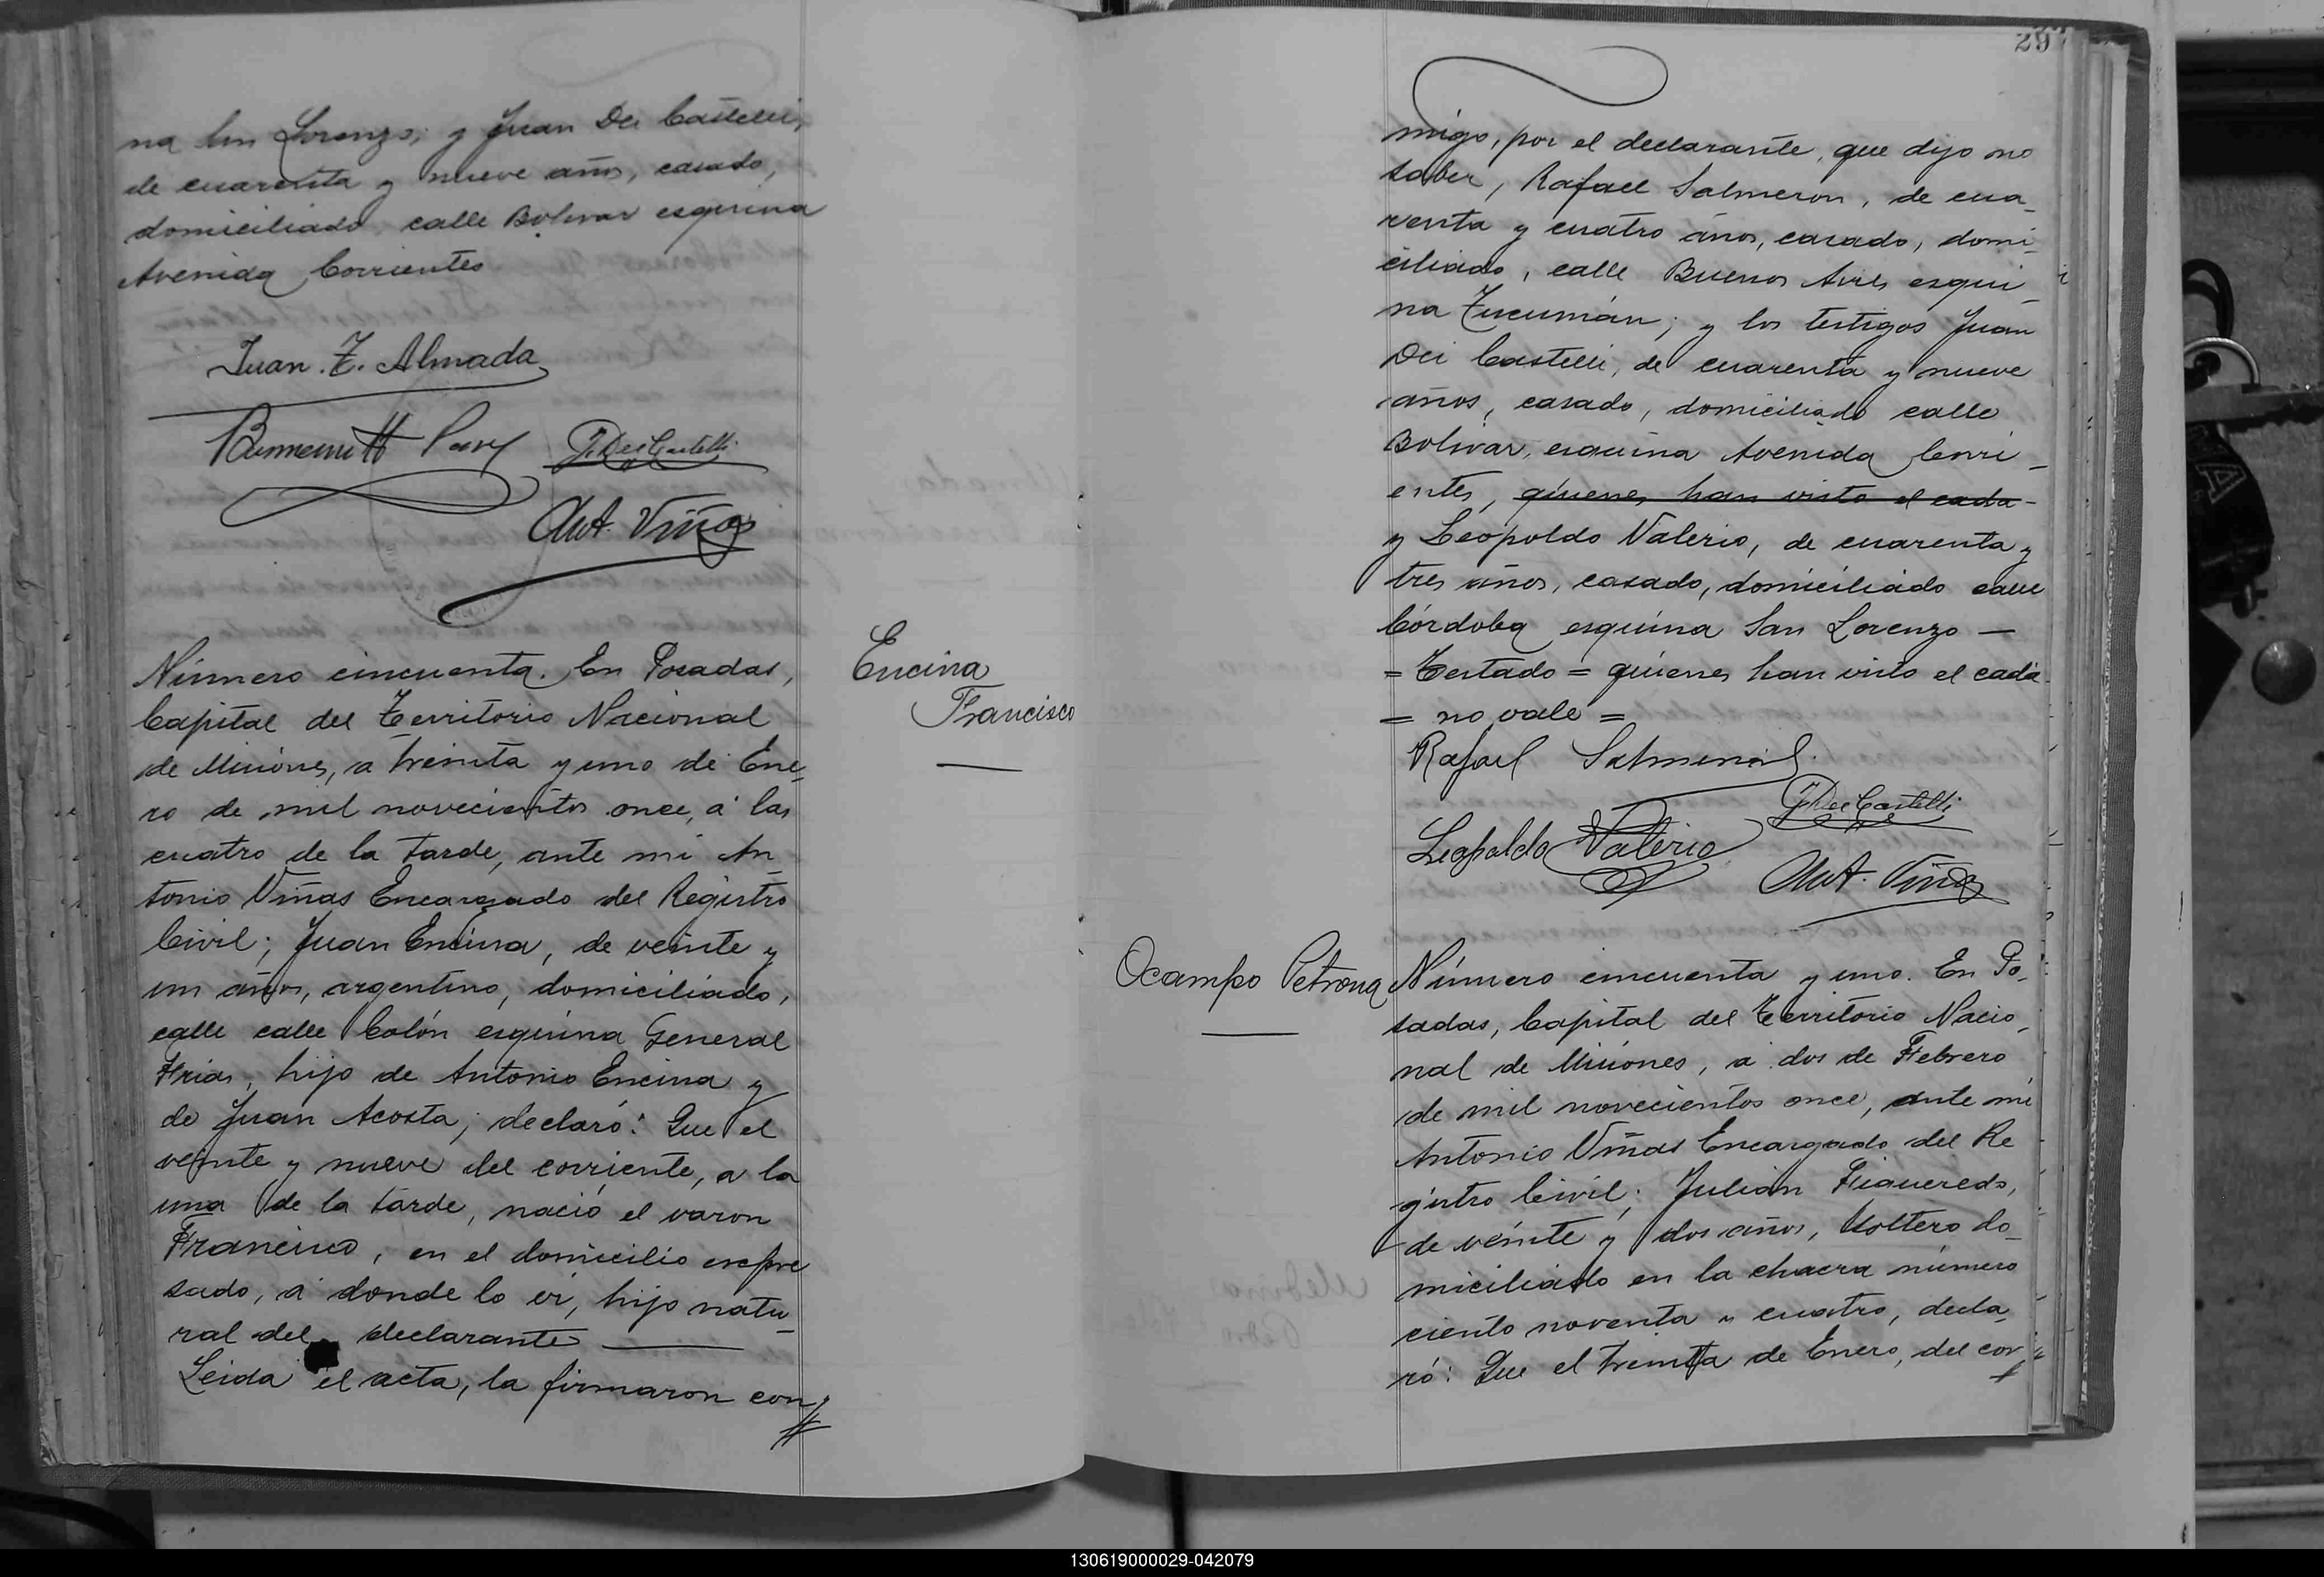 na San Lorenzo; y Juan Dei Castelli,
de cuarenta y nueve años, casado,
domiciliado, calle Bolivar esquina
Avenida Corrientes
Juan. Z. Almada
J. Dei Castelli
Ant. Viñas
Encina
Francisco
Número cincuenta. En Posadas,
Capital del Territorio Nacional
de Misiones, a treinta y uno de Ene_
ro de mil novecientos once, á las
cuatro de la tarde, ante mi An_
tonio Viñas Encargado del Registro
Civil; Juan Encina, de veinte y
un años, argentino, domiciliado,
calle calle Colón esquina General
Frias, hijo de Antonio Encina y
de Juan Acosta; declaró: Que el
veinte y nueve del corriente, a la
una de la tarde, nació el varon
Francisco, en el domicilio expre
sado, á donde lo vi, hijo natu_
ral del declarante
Leida el acta, la firmaron con_
29
migo, por el declarante, que dijo no
saber, Rafael Salmeron, de cua_
renta y cuatro años, casado, domi_
ciliado, calle Buenos Aires esqui_
na Tucumán; y los testigos Juan
Dei Castelli, de cuarenta y nueve
años, casado, domiciliado calle
Bolivar, esquina Avenida Corri_
entes, quienes han visto el cada-
y Leopoldo Valerio, de cuarenta y
tres años, casado, domiciliado calle
Córdoba esquina San Lorenzo —
= Testado = quienes han visto el cada-
= no vale =
Rafael Salmeron
J. Dei Castelli
Leopoldo Valerio
Ant. Viñas
Ocampo Petrona
Número cincuenta y uno. En Po_
sadas, Capital del Territorio Nacio_
nal de Misiones, á dos de Febrero
de mil novecientos once, ante mi
Antonio Viñas Encargado del Re
gistro Civil; Julián Figueredo,
de veinte y dos años, soltero do_
miciliado en la chacra número
ciento noventa y cuatro, decla_
ró: Que el treinta de Enero, del cor_
130619000029-042079